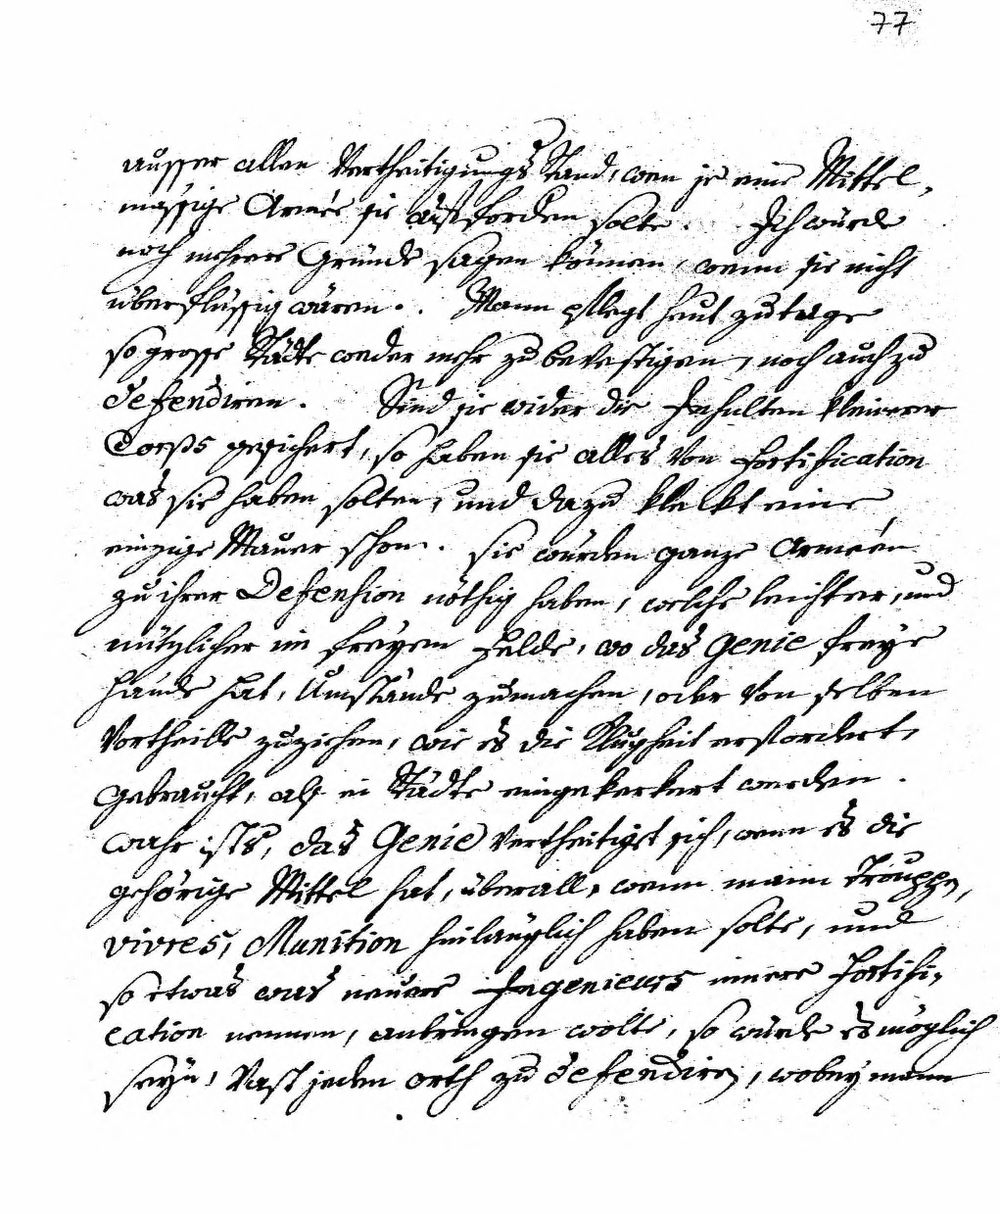 77
ausser allen Vertheitigungs Stand, wen je eine Mittel,
mässige Armée sie aufforderen solte. Ich würde
noch mehrere Gründe sagen können, wenn sie nicht
überflüssig wären. Mann pflegt heut zu tage
so grosse Städte weder mehr zu bevestigen, noch auch zu
defendiren. Sind sie wider die Insulten kleinerer
Corps gesichert, so haben sie alles von Fortification
was sie haben solten, und dazu kleckt eine
einzige Mauer schon. sie würden ganze Arméen
zu ihrer Defension nöthig haben, welche leichter, und
nützlicher im freyem Felde, wo das Genie freye
Hände hat, Umstände zumachen, oder von selben
Vortheille zuziehen, wie es die Klugheit erfordert,
gebraucht, als in Städte eingekerkert werden.
wahr ists, das Genie vertheitiget sich, wenn es die
gehörige Mittel hat, überall, wenn mann Trouppen,
vivres, Munition hinlänglich haben solte, und
so etwas was neüere Ingenieurs innere Fortifi,
cation nennen, anbringen wolte, so würde es möglich
seyn, vast jeden orth zu defendiren, wobey mann